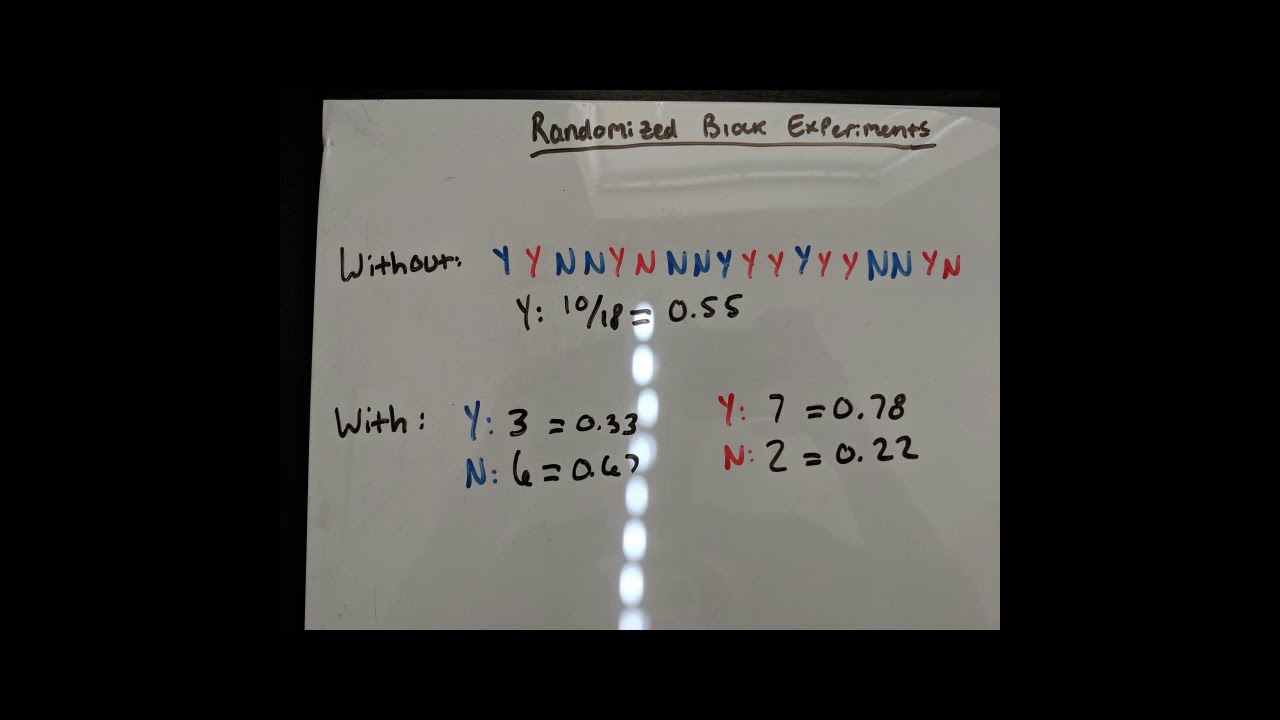 Randomized Block Experiments
Without: Y Y N N Y N N N Y Y Y Y Y Y N N Y N
Y: 10/18 = 0.55
With: Y: 3 = 0.33 Y: 7 = 0.78
N: 6 = 0.67 N: 2 = 0.22